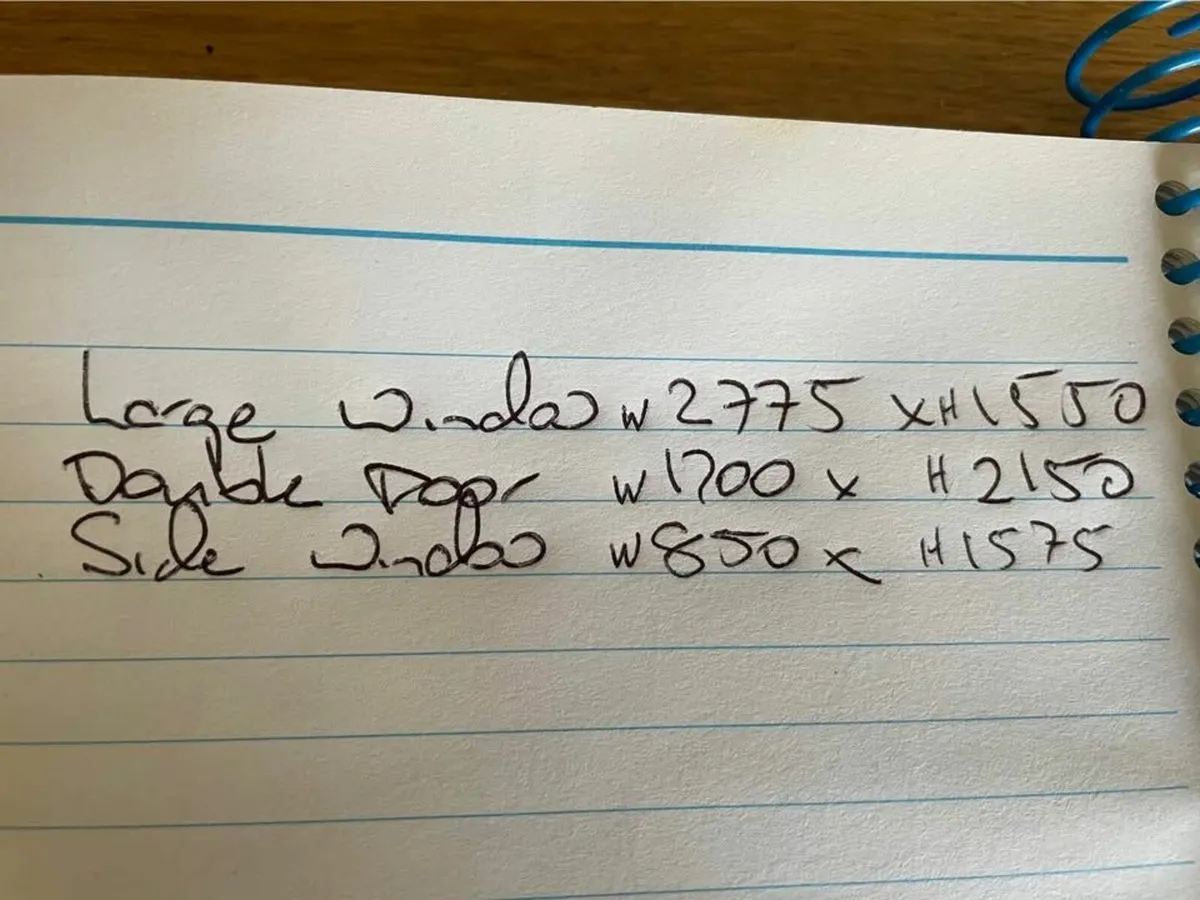 Large window W2775 x H1550
Double Door W1700 x H2150
Side window W850 x H1575